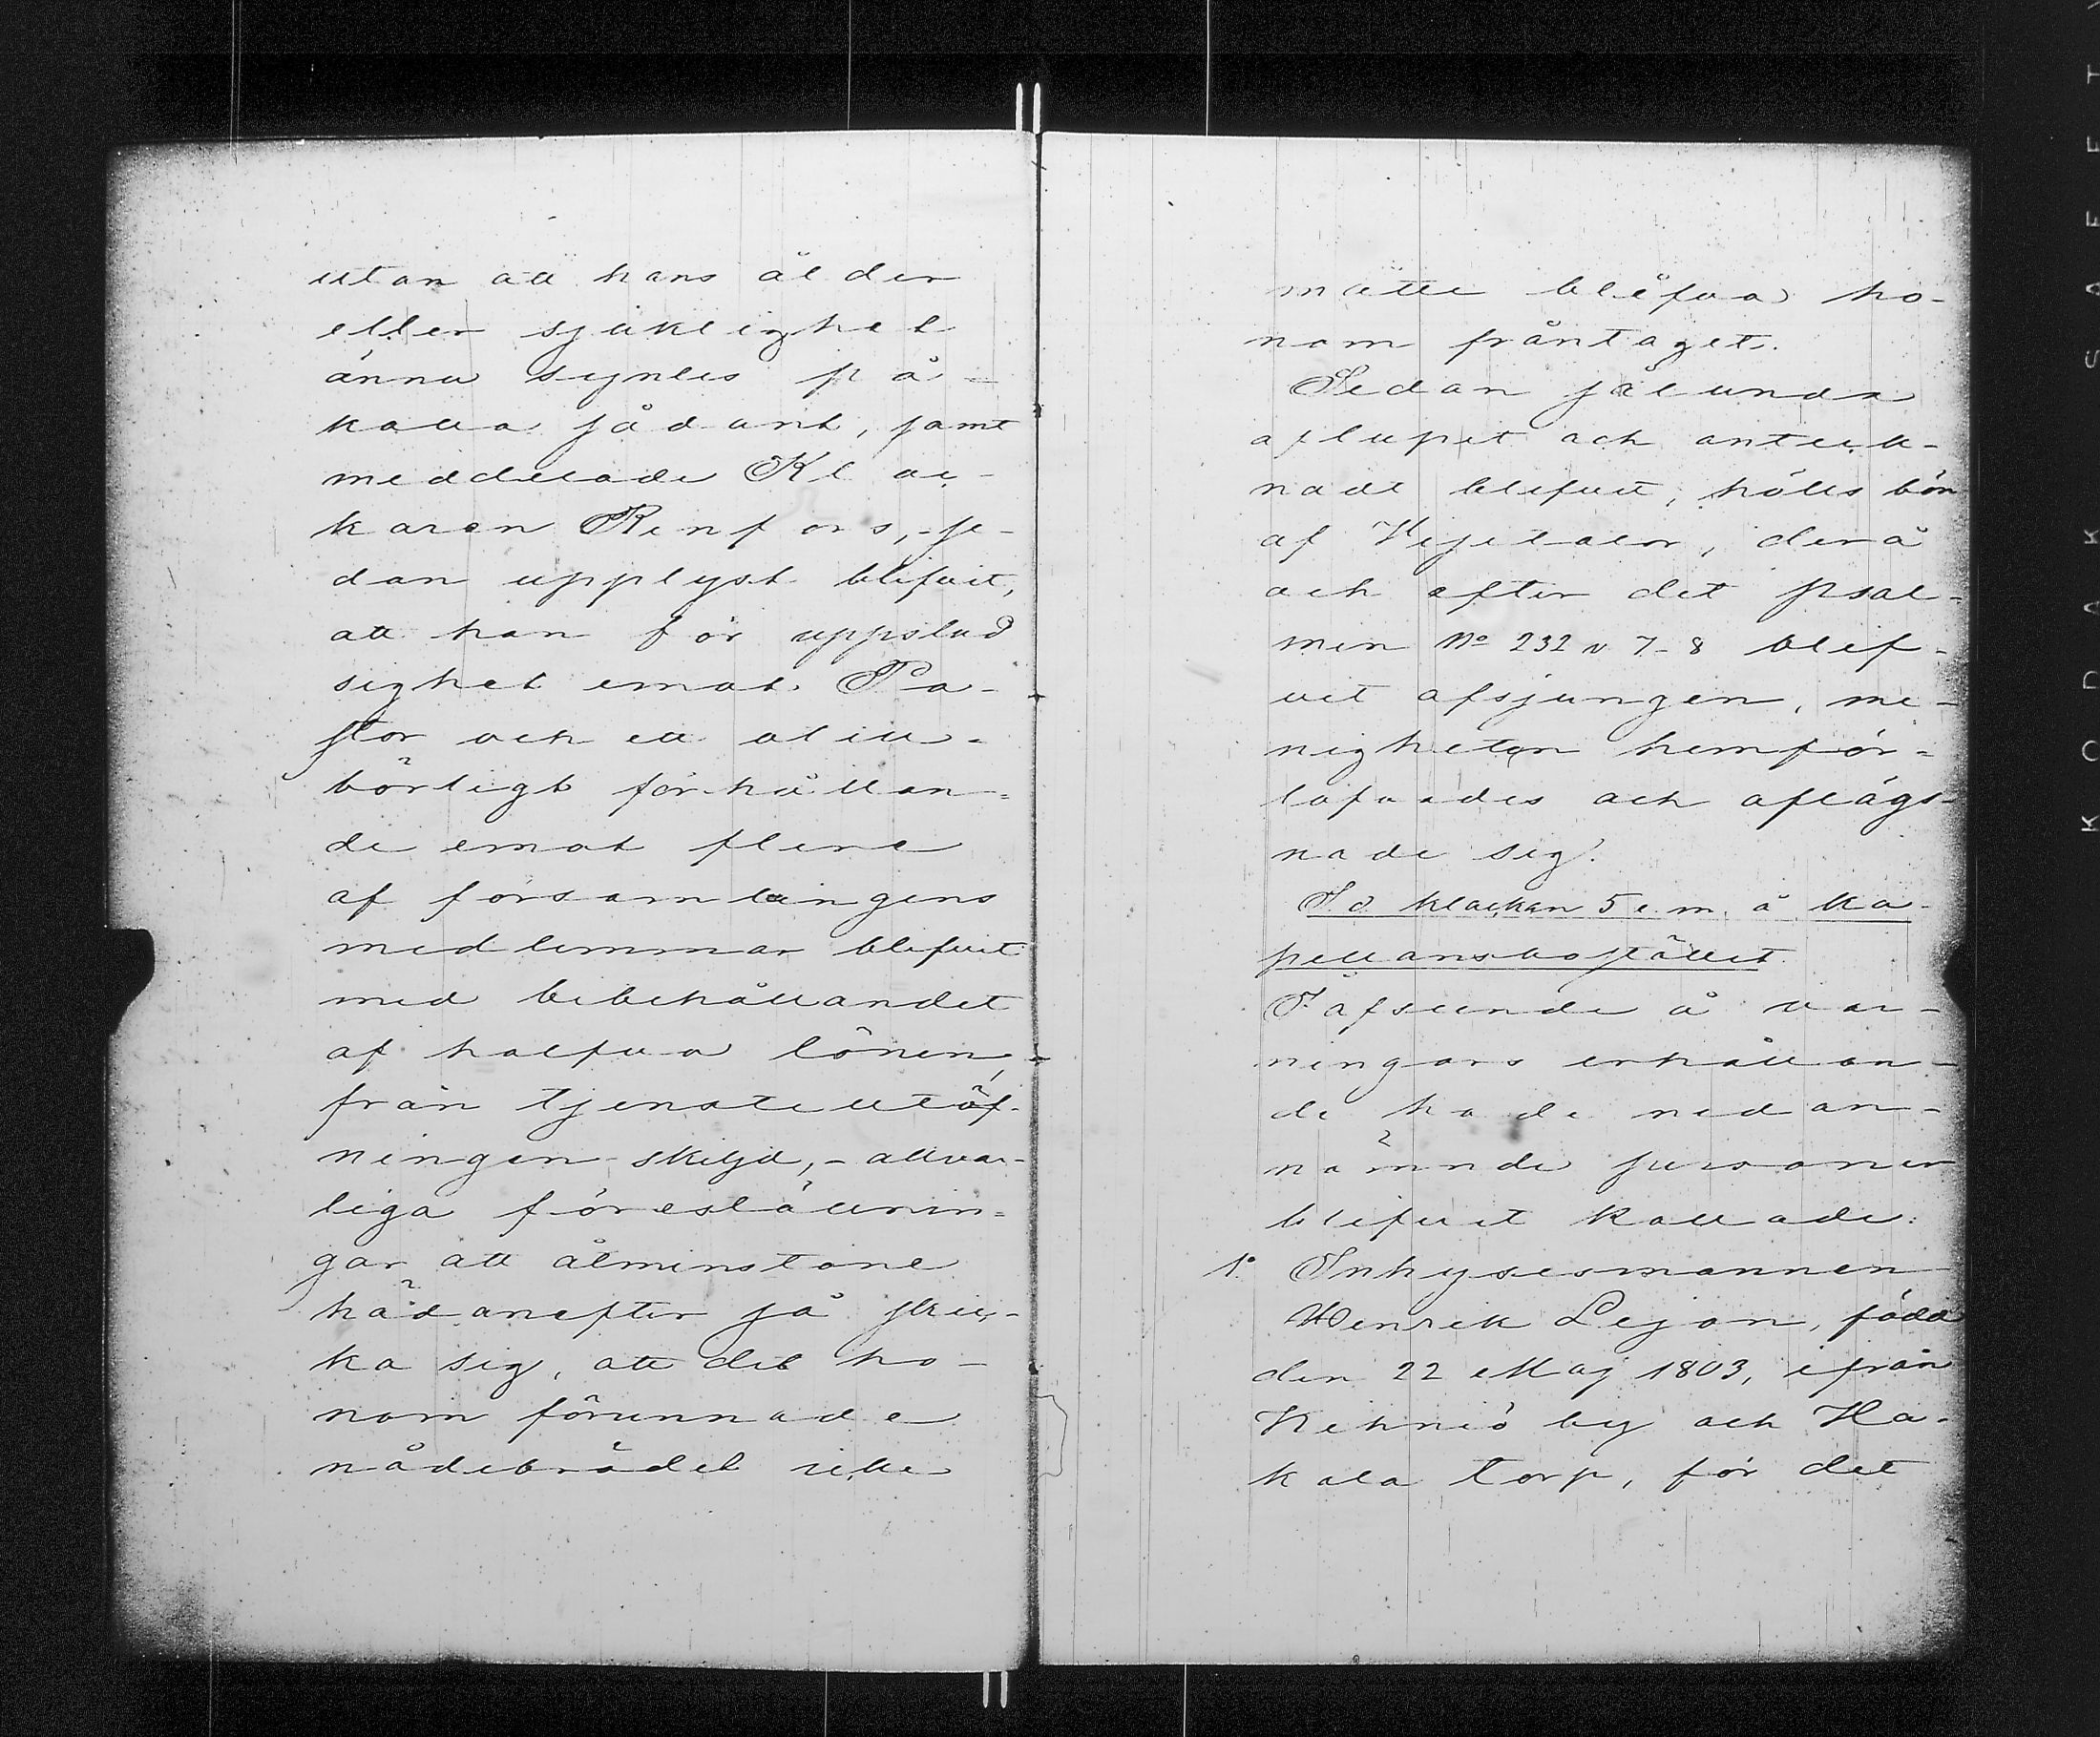 utan att hans ålder
eller sjuklighet
ännu syntes på-
kalla sådant, samt
meddelade Kloc-
karen Renfors, -se-
dan upplyst blifvit,
att han för uppstud
sighet emot Pa-
stor och ett otill-
börligt förhållan-
de emot flere
af församlingens
medlemmar blifvit
med bibehållandet
af halfva lönen,
från tjensteutöf-
ningen skiljd, - allvar-
liga föreställnin-
gar att åtminstone
hädanefter så skic-
ka sig, att det ho-
nom förunnade
nådebrödet icke
måtte blifva ho-
nom fråntaget.
Sedan sålunda
aflupit och anteck-
nadt blifvit, hölls bön
af Visitator, derå
och efter det psal-
men No 232 v 7-8 blif-
vit afsjungen, me-
nigheten hemför-
lofvades och aflägs-
nade sig.
S. d. klockan 5 e. m. å Ka-
pellansbostället.
I afseende å var-
ningars erhållan-
de hade nedan-
nämnde personer
blifvit kallade:
1o Inhysesmannen
Henrik Lejon, född
den 22 Maj 1803, ifrån
Kihniö by och Ha-
kala torp, för det
KODAK SAFETY